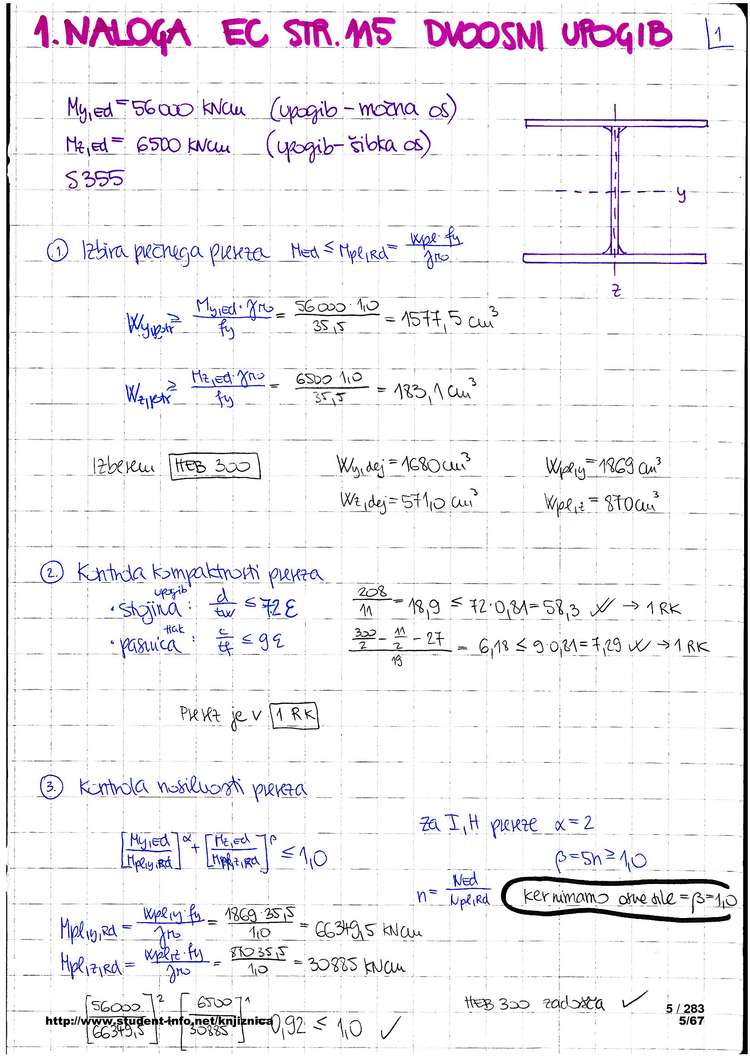 1. NALOGA EC STR. 115 DVOOSNI UPOGIB 1
My,Ed = 56000 kNcm (upogib - močna os)
Mz,Ed = 6500 kNcm (upogib - šibka os)
S355
y
z
① Izbira prečnega prereza MEd ≤ Mpl,Rd = Wpl · fy / γM0
Wy,potr ≥ My,Ed · γM0 / fy = 56000 · 1,0 / 35,5 = 1577,5 cm³
Wz,potr ≥ Mz,Ed · γM0 / fy = 6500 · 1,0 / 35,5 = 183,1 cm³
Izberem HEB 300 Wy,dej = 1680 cm³ Wpl,y = 1869 cm³
Wz,dej = 571,0 cm³ Wpl,z = 870 cm³
② Kontrola kompaktnosti prereza
• stojina upogib : d / tw ≤ 72 ε 208 / 11 = 18,9 ≤ 72 · 0,81 = 58,3 ✓ → 1 RK
• pasnica tlak : c / tf ≤ 9 ε 300/2 - 11/2 - 27 / 19 = 6,18 ≤ 9 · 0,81 = 7,29 ✓ → 1 RK
Prerez je v 1 RK
③ Kontrola nosilnosti prereza
[My,Ed / Mpl,y,Rd]^α + [Mz,Ed / Mpl,z,Rd]^β ≤ 1,0
za I, H prereze α = 2
β = 5n ≥ 1,0
n = NEd / Npl,Rd ker nimamo osne sile = β = 1,0
Mpl,y,Rd = Wpl,y · fy / γM0 = 1869 · 35,5 / 1,0 = 66349,5 kNcm
Mpl,z,Rd = Wpl,z · fy / γM0 = 870 · 35,5 / 1,0 = 30885 kNcm
[56000 / 66349,5]² [6500 / 30885]¹ 0,92 ≤ 1,0 ✓
HEB 300 zadošča ✓
http://www.student-info.net/knjiznica
5 / 283
5/67